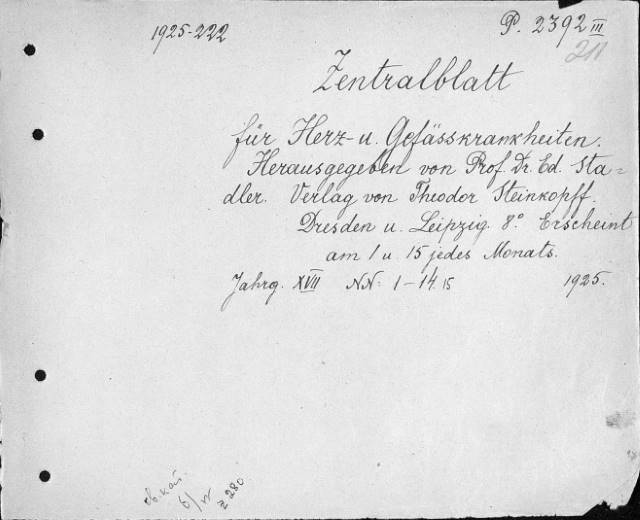 1925-222
P. 2392 III
211
Zentralblatt
für Herz- u. Gefässkrankheiten.
Herausgegeben von Prof. Dr. Ed. Sta-
dler. Verlag von Theodor Steinkopff.
Dresden u. Leipzig. 8° Erscheint
am 1 u 15 jedes Monats.
Jahrg. XVII NN: 1-14. 15 1925.
б/н
z 280